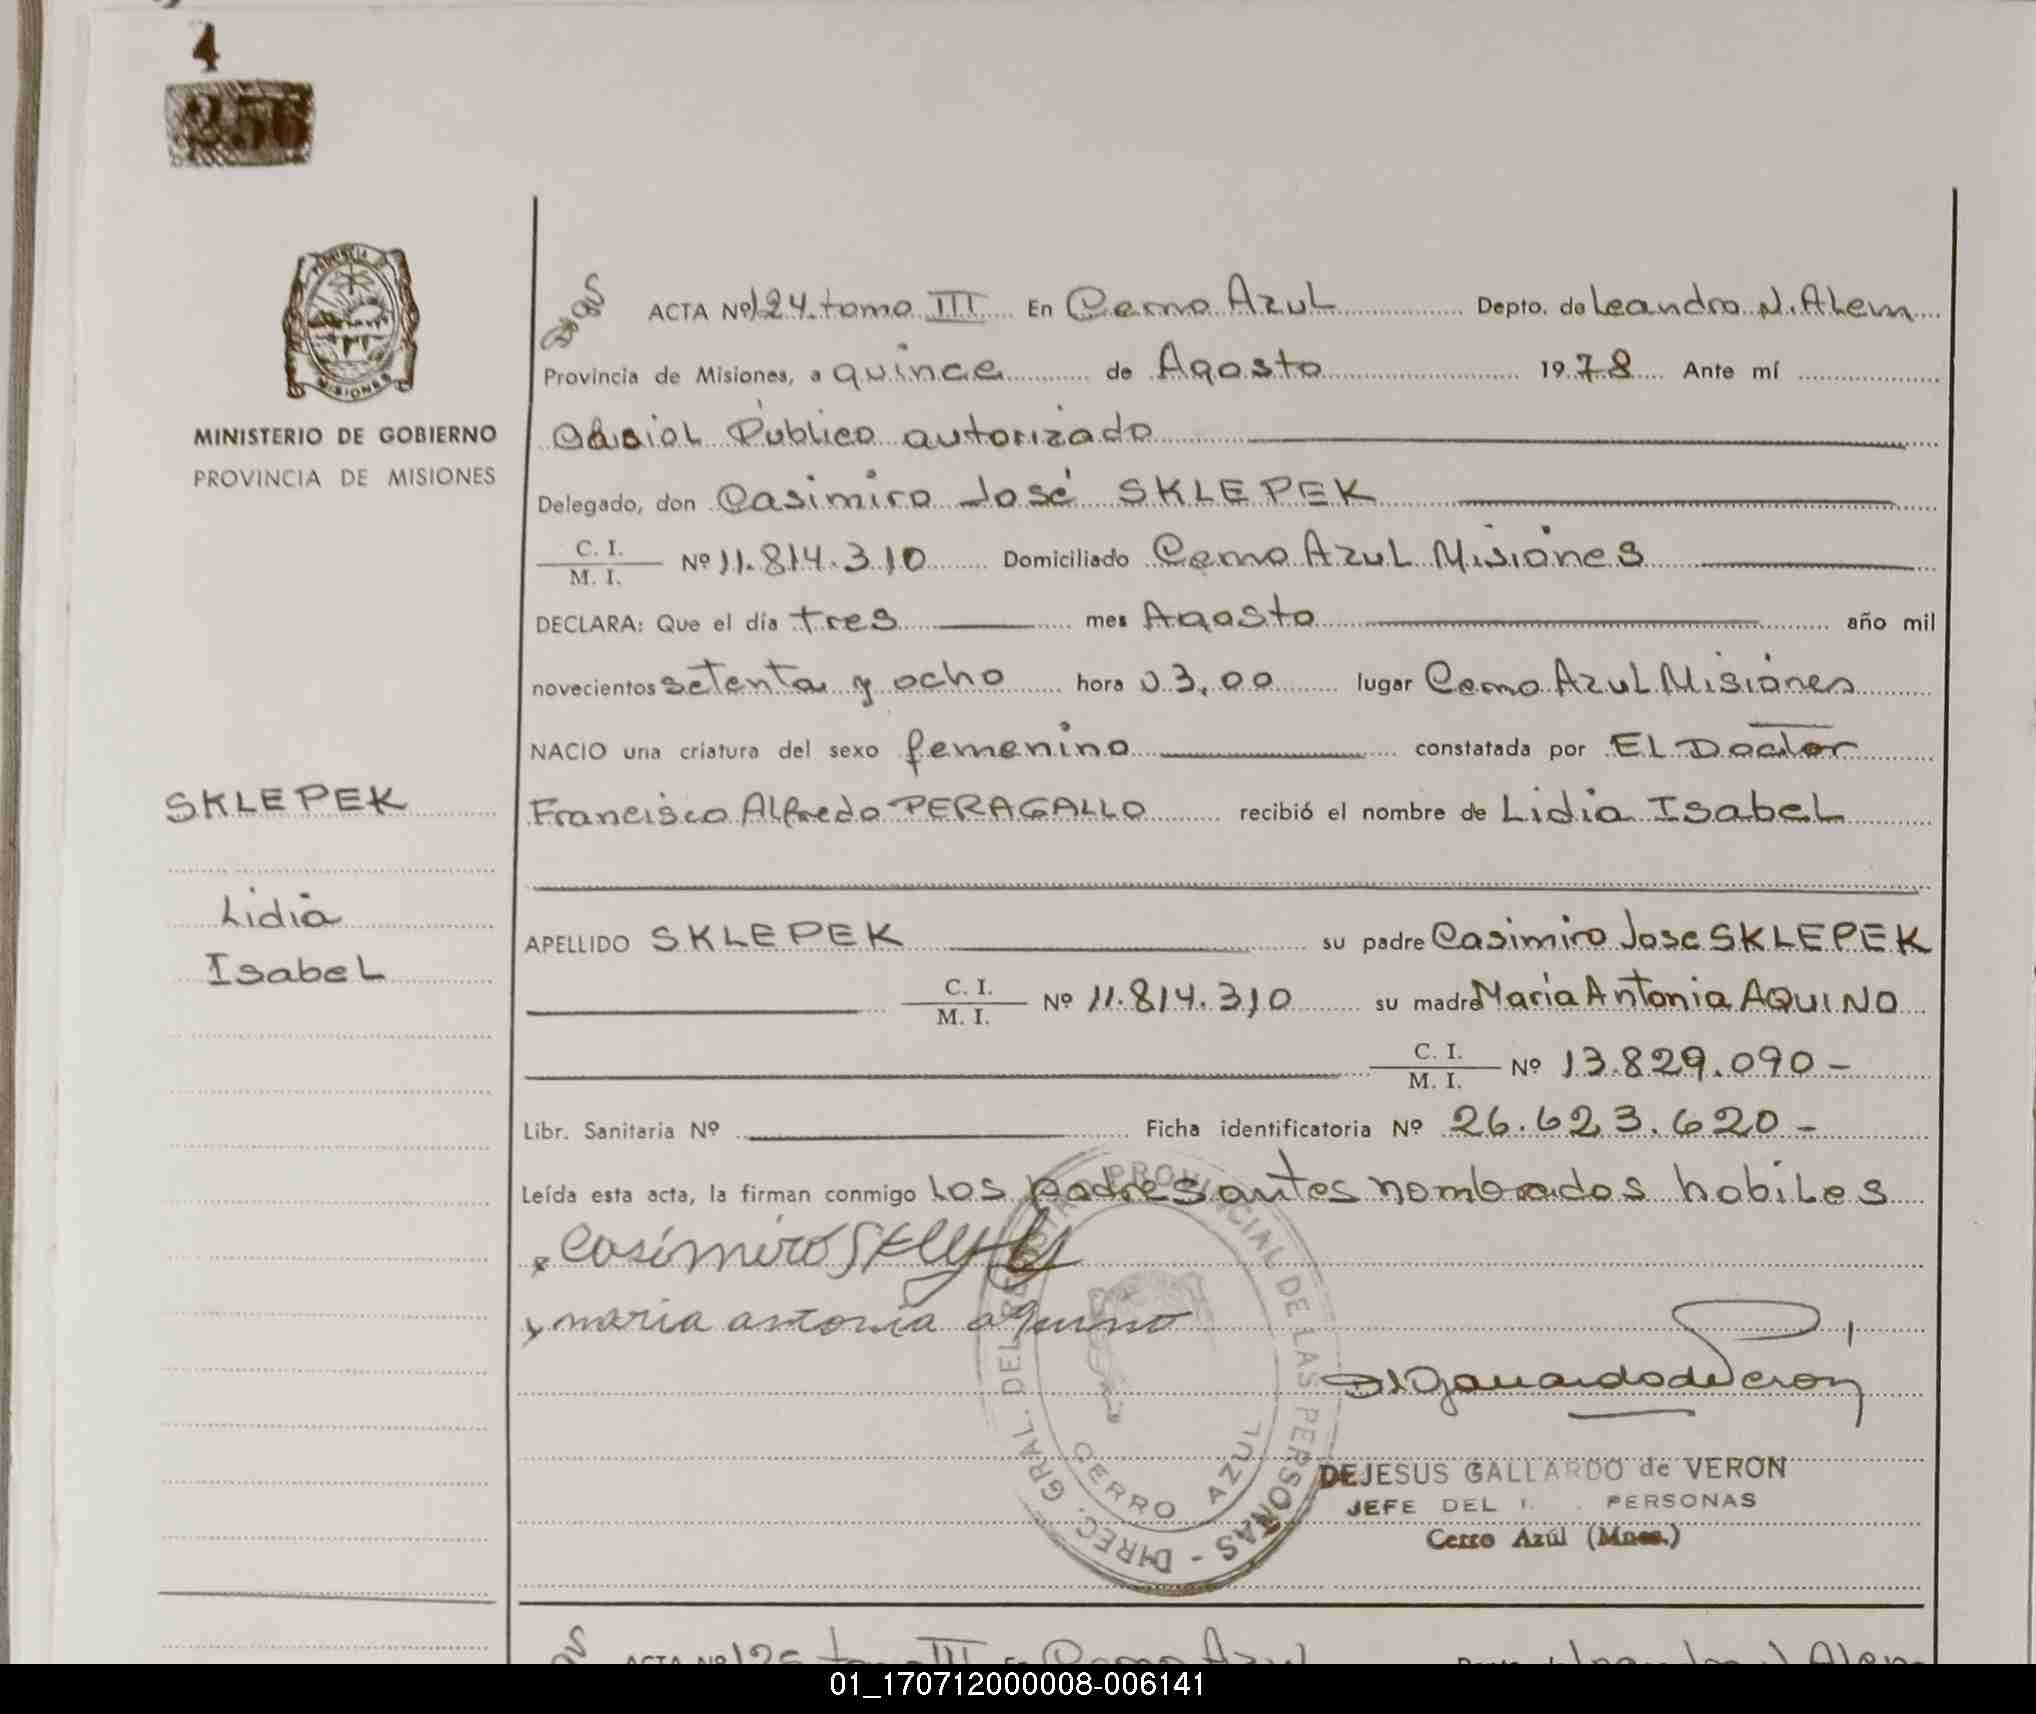 4
256
PROVINCIA DE
MISIONES
MINISTERIO DE GOBIERNO
PROVINCIA DE MISIONES
SKLEPEK
Lidia
Isabel
ACTA Nº 124 tomo III En Cerro Azul Depto. de Leandro N. Alem
Provincia de Misiones, a quince de Agosto 1978 Ante mí
Oficial Público autorizado
Delegado, don Casimiro José SKLEPEK
C. I. / M. I. Nº 11.814.310 Domiciliado Cerro Azul Misiones
DECLARA: Que el día tres mes Agosto año mil
novecientos setenta y ocho hora 03,00 lugar Cerro Azul Misiones
NACIO una criatura del sexo femenino constatada por EL Doctor
Francisco Alfredo PERAGALLO recibió el nombre de Lidia Isabel
APELLIDO SKLEPEK su padre Casimiro Jose SKLEPEK
C. I. / M. I. Nº 11.814.310 su madre Maria Antonia AQUINO
C. I. / M. I. Nº 13.829.090-
Libr. Sanitaria Nº Ficha identificatoria Nº 26.623.620-
Leída esta acta, la firman conmigo Los padres antes nombrados habiles
Casimiro
maria antonia aquino
DIREC. GRAL. DEL REGISTRO PROVINCIAL DE LAS PERSONAS -
CERRO AZUL
DEJESUS GALLARDO de VERON
JEFE DEL PERSONAS
Cerro Azúl (Mnes.)
ACTA Nº tomo III En Cerro Azul Leandro N Alem
01_170712000008-006141